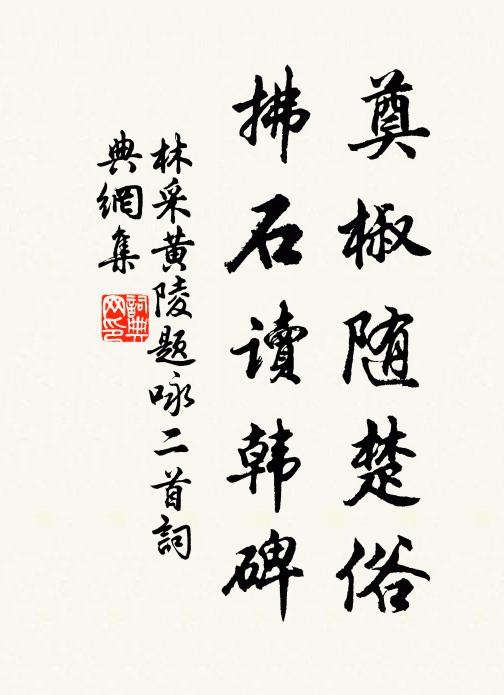 奠椒随楚俗
拂石读韩碑
林采黄陵题咏二首詞
典網集
詞典
网印